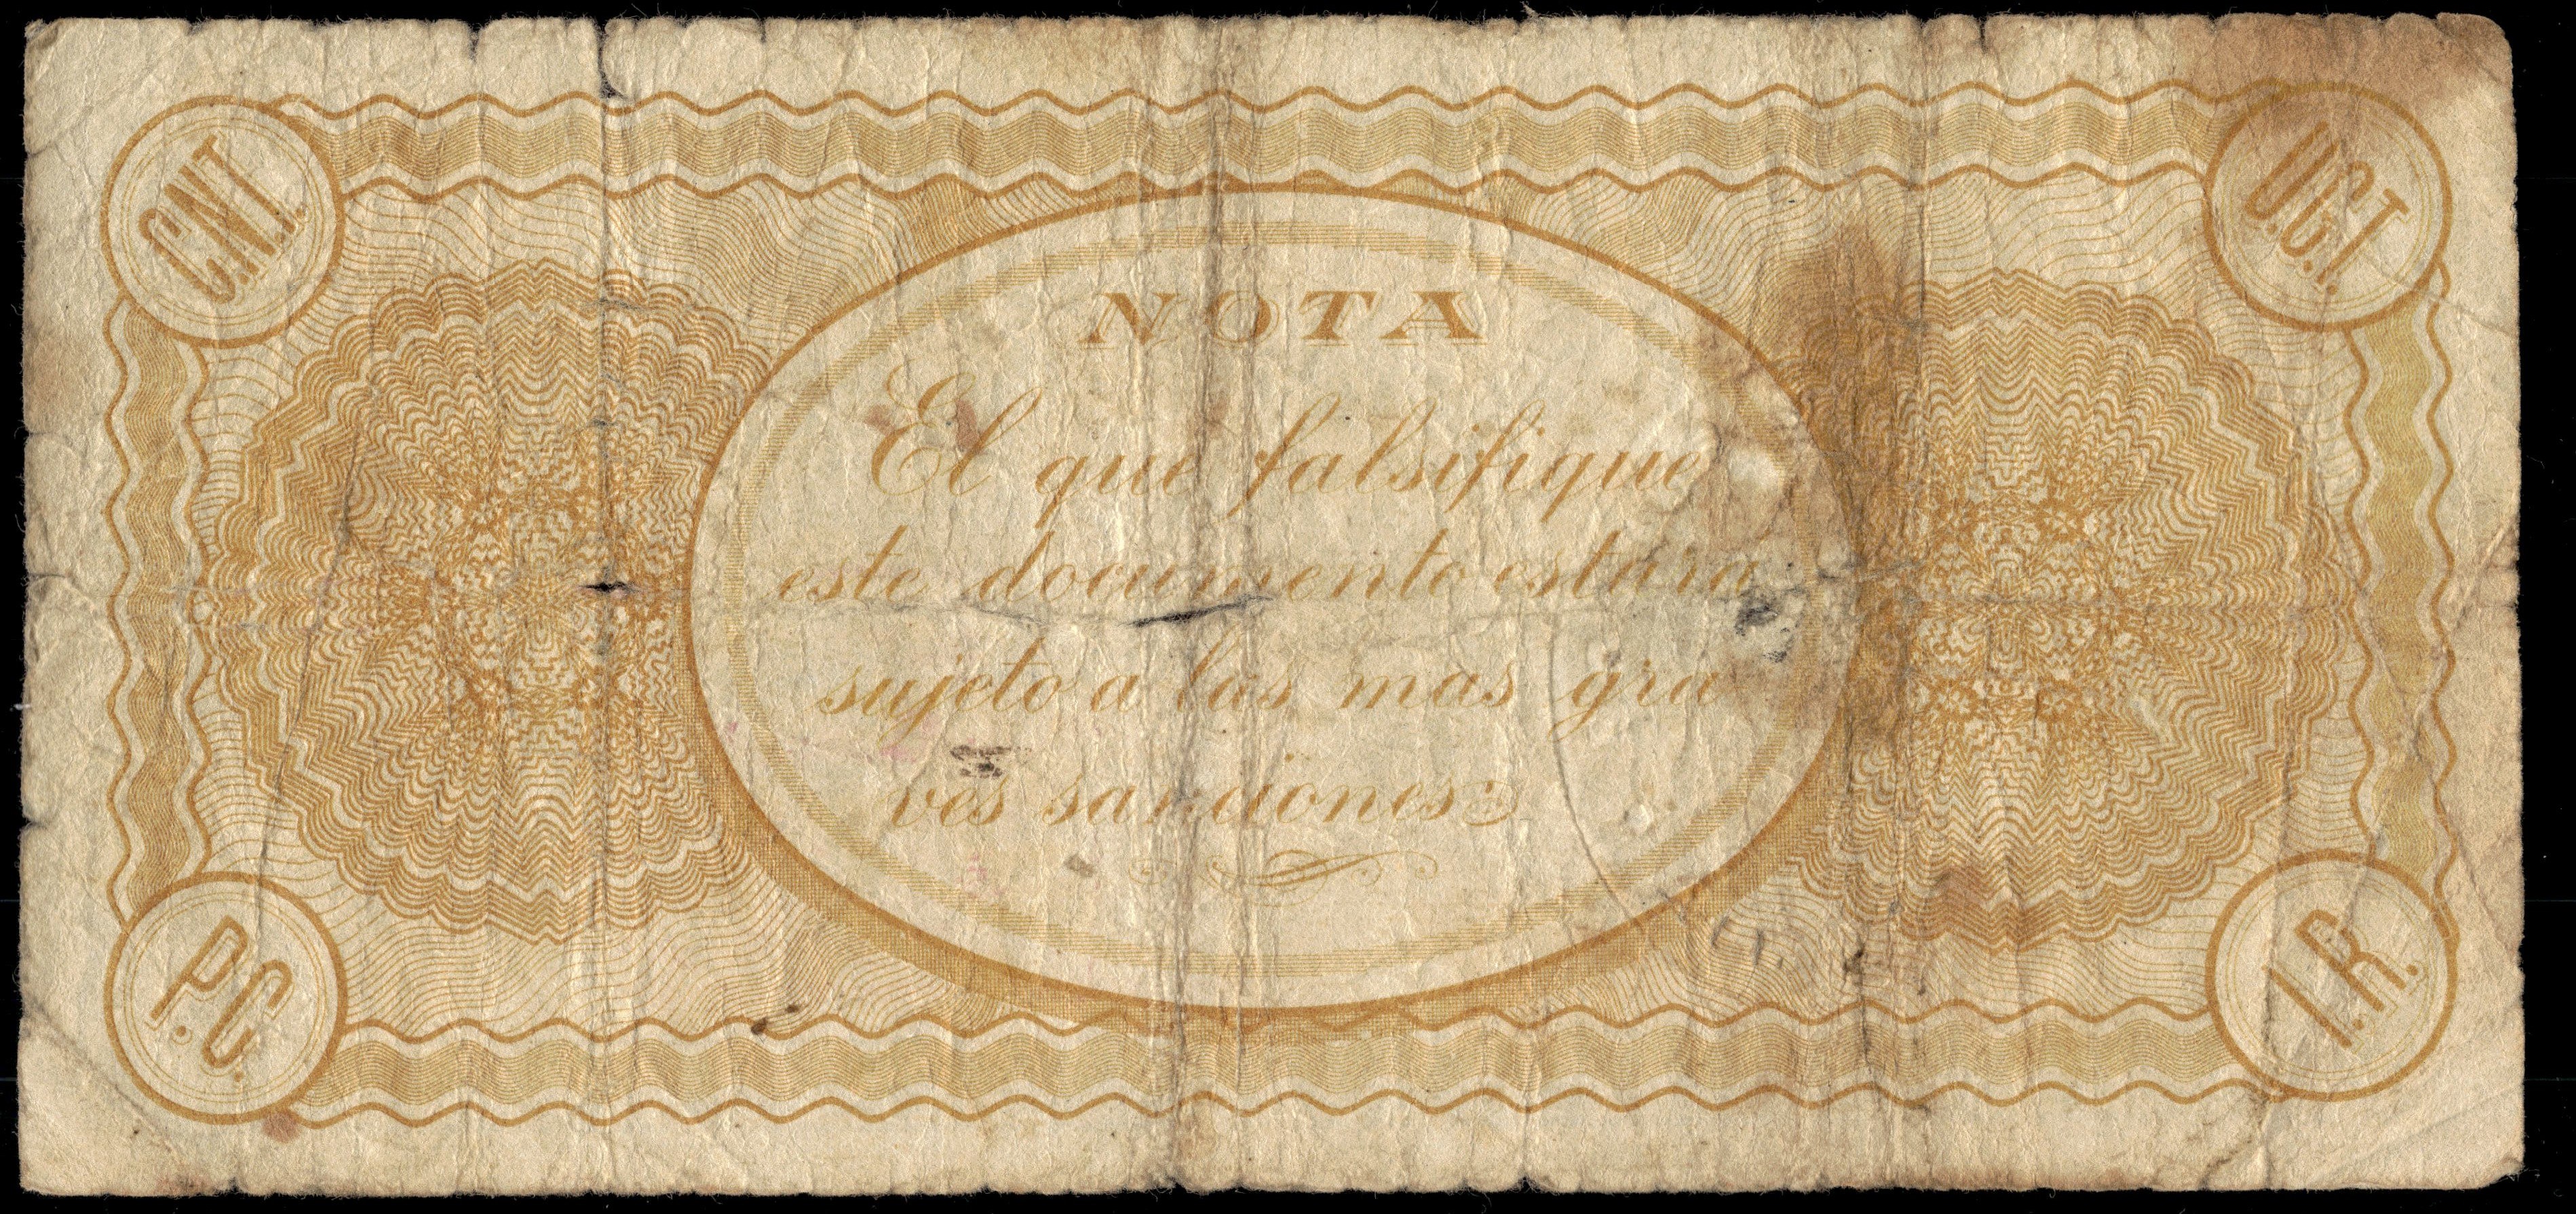 C.N.T.
U.G.T.
NOTA
El que falsifique
este documento estara
sujeto a las mas gra
ves sanciones
P.C.
I.R.